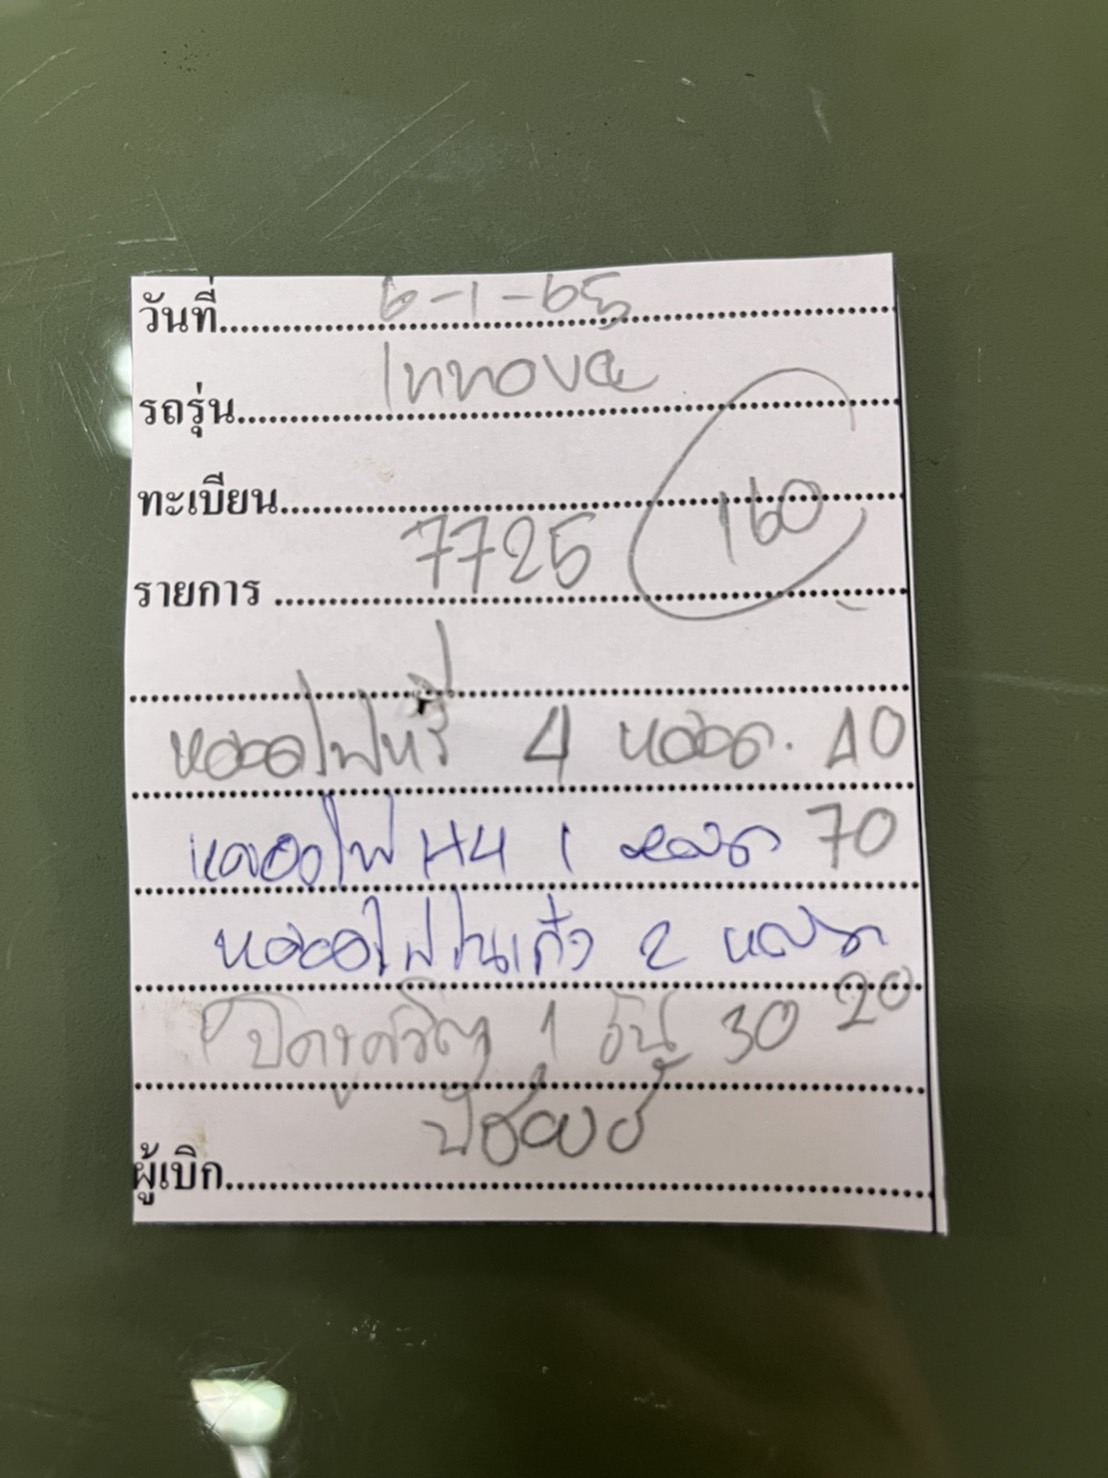 วันที่ 6-1-65
รถรุ่น Innova
ทะเบียน 7725 160
รายการ
หลอดไฟหรี่ 4 หลอด. 40
หลอดไฟ H4 1 หลอด 70
หลอดไฟในเก๋ง 2 หลอด
1 อัน 30 20
ผู้เบิก